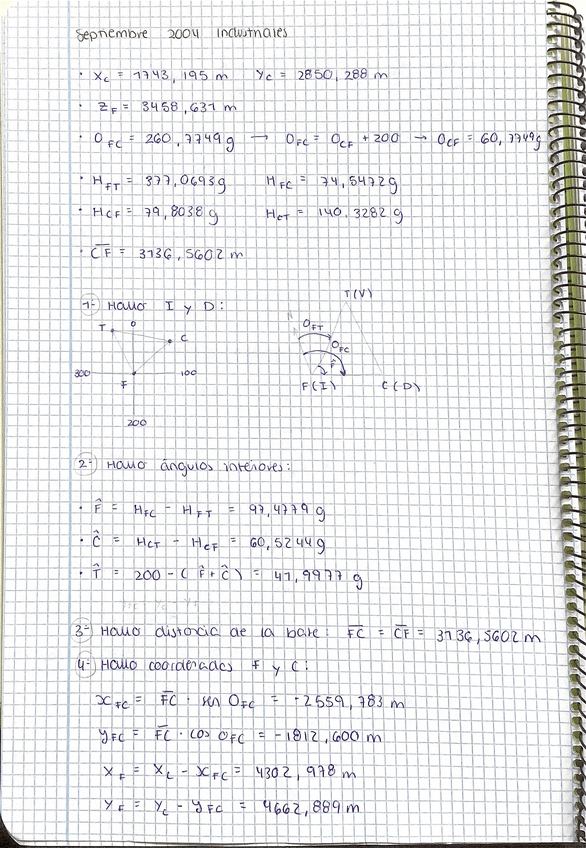 Septiembre 2004 Industriales
· Xc = 1743,195 m Yc = 2850,288 m
· ZF = 3458,631 m
· OFC = 260,7749g → OFC = OCF + 200 → OCF = 60,7749g
· HFT = 377,0693g HFC = 74,5472g
· HCF = 79,8038g HCT = 140,3282g
· CF = 3136,5602 m
1- Hallo I y D:
T(V)
T 0 C
OFT
OFC
300 100
F
F̂
F(I) C(D)
200
2- Hallo ángulos interiores:
· F̂ = HFC - HFT = 97,4779 g
· Ĉ = HCT - HCF = 60,5244g
· T̂ = 200 - (F̂+Ĉ) = 41,9977 g
3- Hallo distancia de la base: FC = CF = 3136,5602 m
4- Hallo coordenadas F y C:
xFC = FC · sen OFC = -2559,783 m
yFC = FC · cos OFC = -1812,600 m
XF = XC - xFC = 4302,978 m
YF = YC - yFC = 4662,889 m